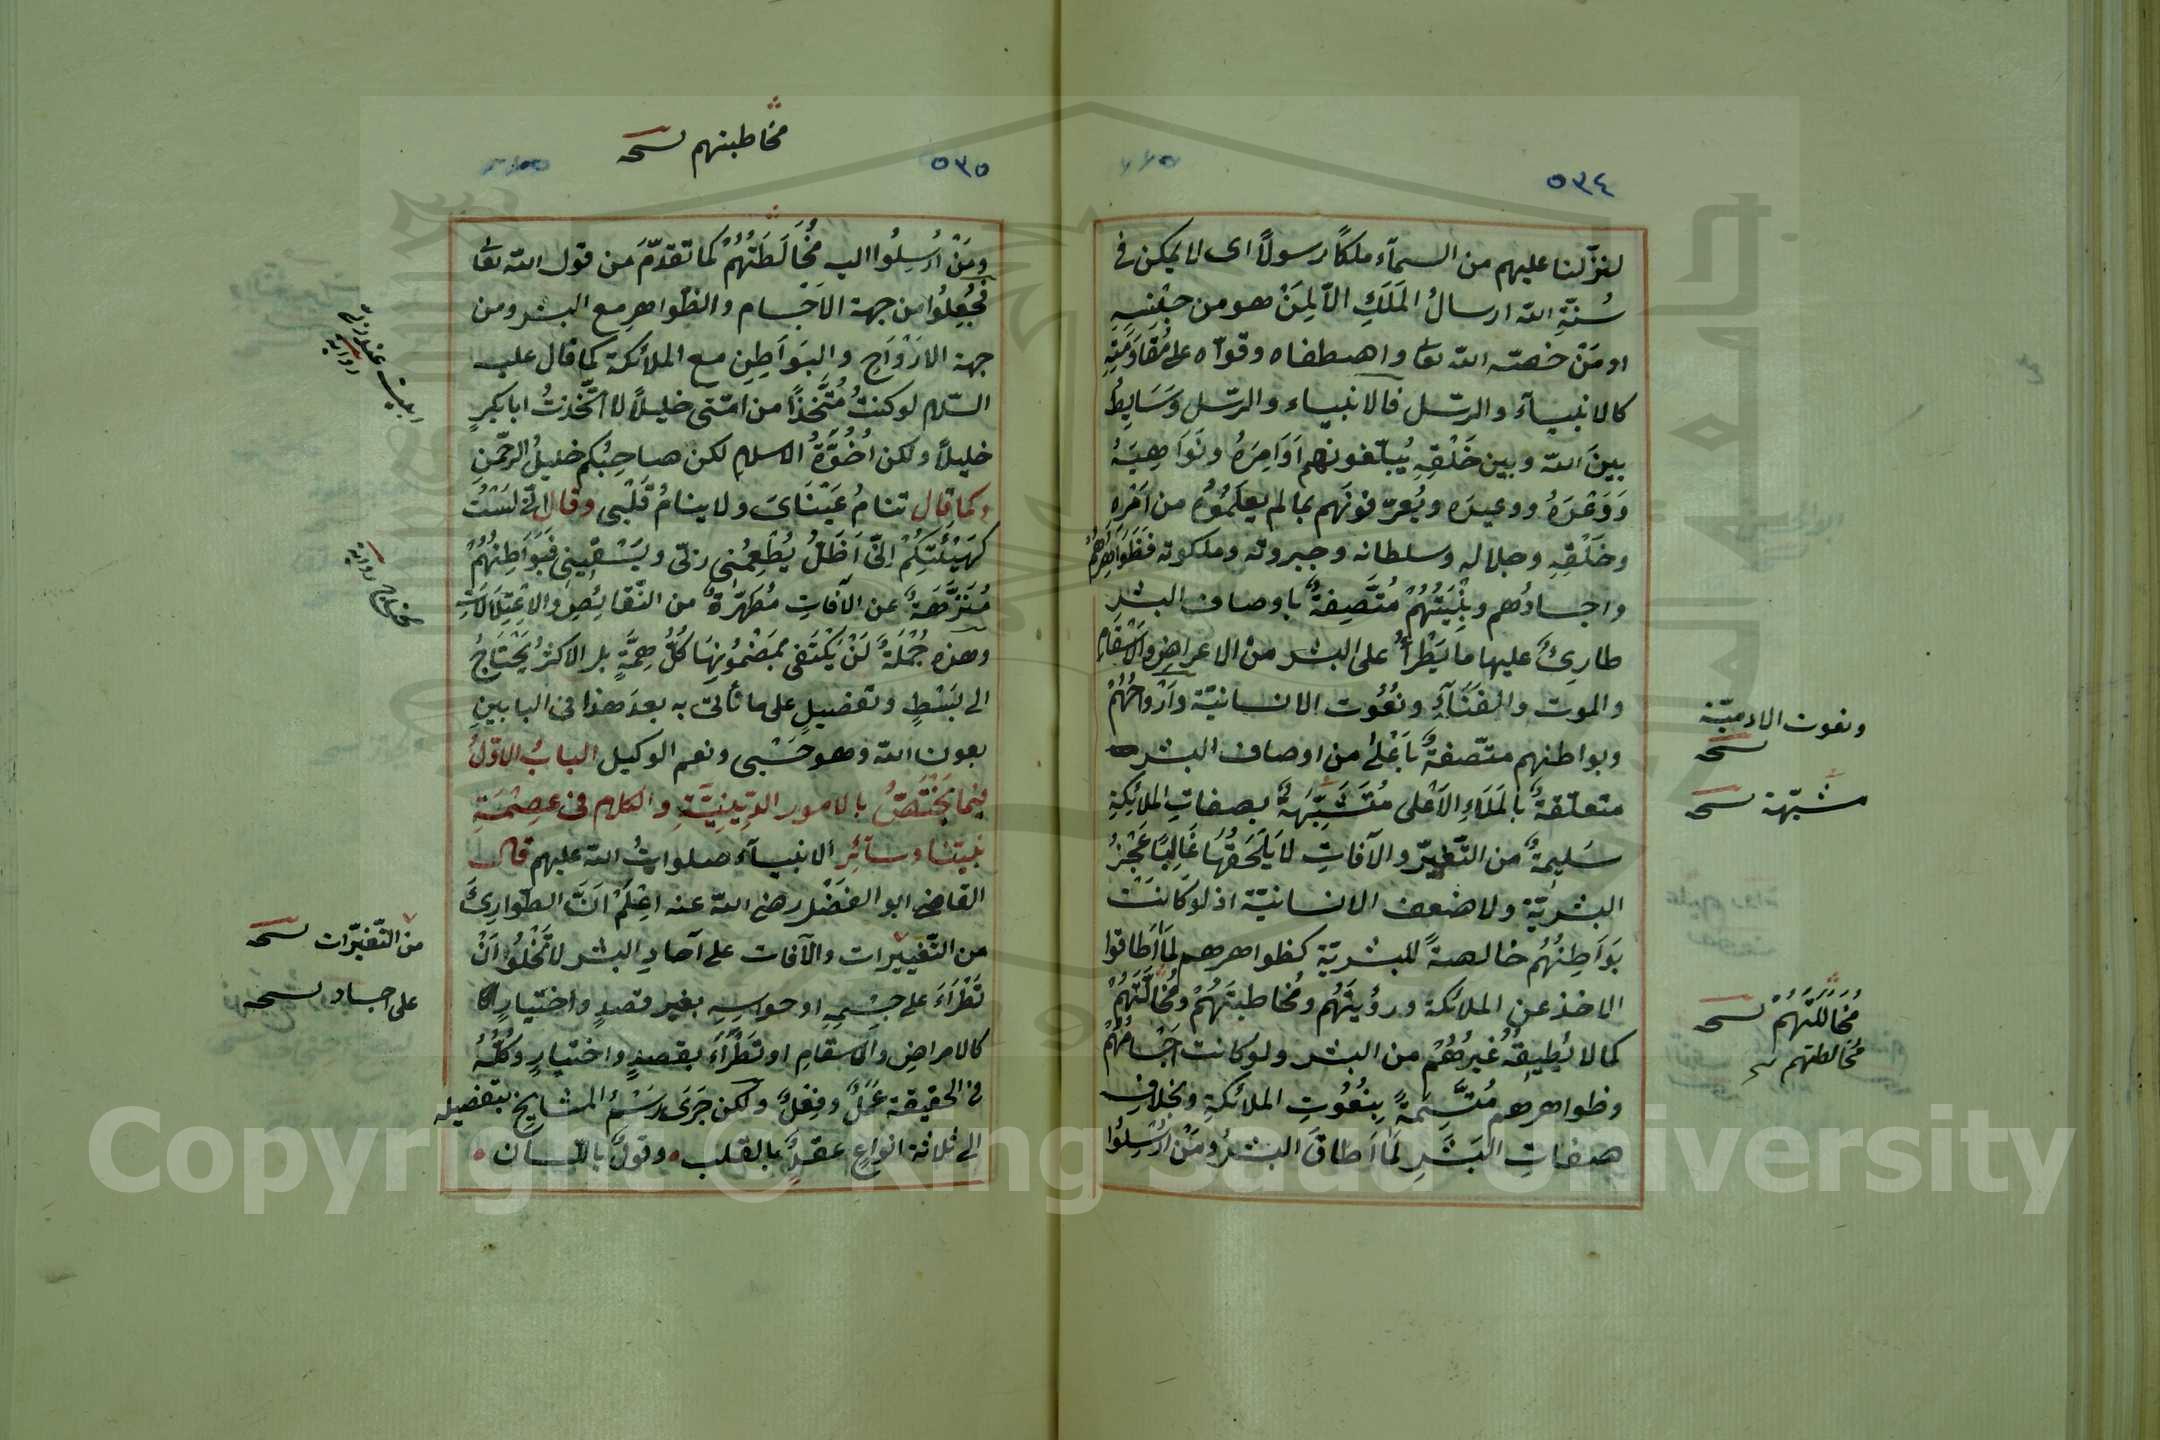 ٥٣٤
لنزّلنا عليهم من السمآء ملكًا رسولاً اى لا يمكن فى
سُنّةِ الله ارسالُ المَلَكِ الّا لِمَنْ هو من جِنْسِهِ
او مَنْ خصّه الله تعا واصطفاه وقوّاه على مُقَاوَمَتِهِ
كالانبيآء والرسّل فالانبياء والرسّل وَسَايِطُ
بينَ الله وبين خَلْقِهِ يُبلّغونهم اَوَامِرَهُ ونَوَاهِيَهُ
وَوَعْدَهُ ووعيدَه ويُعرّفونَهم بما لم يعلَمُوْهُ من اَمْرِهِ
وخَلْقِهِ وجلالِهِ وسلطانه وجبروته وملكوته فظَوَاهِرُهُمْ
واجسادُهم وبِنْيَتُهُمْ مُتَّصِفةٌ باوصاف البشرِ
طارِئٌ عليها ما يَطْرأُ على البشر من الاعراضِ والاَسْقَامِ
والموت والفَنَآءِ ونُعُوت الانسانيّة وَاَرْوَاحُهُمْ
وبواطنهم متّصفةٌ بِاَعْلىٰ من اوصاف البشر
متعلّقةٌ بالمَلَاءِ الاَعْلى مُتَشَبِّهَةٌ بصفاتِ الملائِكةِ
سَليمةٌ من التّغيّر والآفاتِ لا يَلْحَقُهَا غَالِبًا عَجْزُ
البشريّةِ ولا ضعف الانسانيّة اذ لو كانَتْ
بَوَاطِنُهُم خالصةً للبشريّة كظواهرهم لَمَا اَطاقوا
الاخذ عن الملائكة ورؤيتَهُم ومُخاطبتَهُمْ ومُخَالَّتَهُمْ
كما لا يُطيقُهُ غيرُهُمْ من البشر ولو كانت اَجْسَامُهُمْ
وظواهرهم مُتَّسِمةً بِنُعُوتِ الملائكةِ وبخلافِ
صفاتِ البَشَرِ لَمَا اَطاقَ البشرُ ومَنْ اُرْسِلُوا
ونعوت الادميّة
نسخه
مشبّهة نسخه
مُخَالَلَتَهُمْ نسخه
مُخَالطتهم
٥٣٥
مخاطبتهم نسخه
ومَنْ اُرْسِلُوا اليه مُخَالَطَتَهُمْ كما تقدّمَ من قول الله تعا
فجُعِلُوا من جهة الاَجْسام والظواهرِ مع البشر ومن
جهة الارَْوَاحِ والبَوَاطِنِ مع الملائكة كما قال عليه
السّلام لو كنتُ مُتَّخِذًا من امّتى خليلاً لا اتّخَذتُ ابا بكرٍ
خليلاً ولكن اُخُوَّةُ الاسلامِ لكن صاحِبُكم خليلُ الرحمّنِ
وكما قال تنامُ عَيْنَاىَ ولا ينامُ قَلْبى وقال انّى لَسْتُ
كَهَيْئَتِكُمْ اِنّى اَظَلُّ يُطْعِمُنى ربّى ويَسْقِينِى فَبَوَاطِنُهُمْ
مُنَزَّهَةٌ عن الآفاتِ مُطَهَّرَةٌ من النّقائِصِ والاِعْتِلَالَاتِ
وهذه جُمْلَةٌ لَنْ يَكْتَفى بمَضْمُونِهَا كلُّ هِمَّةٍ بل الاكثرُ يَحْتَاجُ
الى بَسْطٍ وتفصيلٍ على ما نأتى به بعدَ هذا فى البابينِ
بعون الله وهو حَسْبى ونعم الوكيل البابُ الاوّلُ
فيما يَخْتَصُّ بالامور الدِّينِيَّةِ والكلام فى عِصْمَةِ
نبيّنا وسائِرِ الانبيآء صلواتُ الله عليهم قال
القاضى ابو الفَضْل رضى الله عنه اِعْلَمْ اَنَّ الطّوارِئَ
من التّغييرات والآفات على آحادِ البشر لا تَخْلُوا اَنْ
تَطْرَاَ على جِسْمِهِ او حواسِهِ بغير قصدٍ واختيارٍ
كالامراضِ والاَسقامِ او تَطْرَاَ بقصدٍ واختيارٍ وكُلُّهُ
فى الحقيقة عَمَلٌ وفِعْلٌ ولكن جَرَى رَسْمُ المشايخ بتفصيله
الى ثلاثة انواعٍ عقدٌ بالقلب وقولٌ باللّسان
من التّغيّرات نسخه
على اجساد نسخه
Copyright © King Saud University